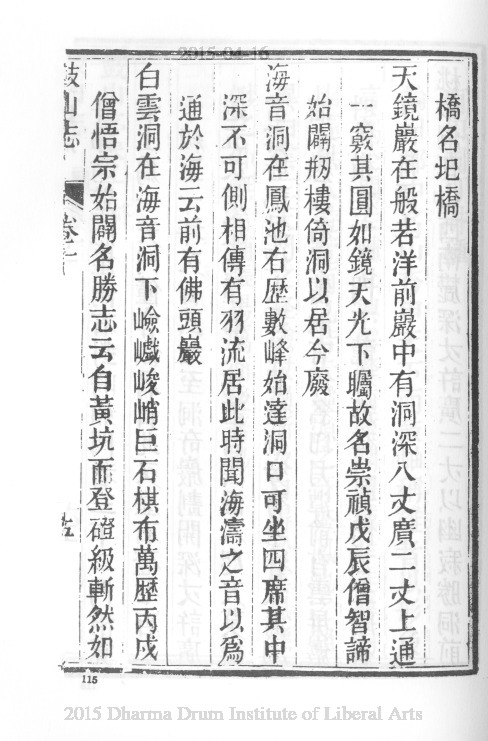 2015-04-16
橋名圯橋
天鏡巖在般若洋前巖中有洞深八丈廣二丈上通
一竅其圓如鏡天光下矚故名崇禎戊辰僧智諦
始闢剏樓倚洞以居今廢
海音洞在鳳池右歷數峰始達洞口可坐四席其中
深不可側相傳有羽流居此時聞海濤之音以爲
通於海云前有佛頭巖
白雲洞在海音洞下嶮巇峻峭巨石棋布萬歷丙戌
僧悟宗始闢名勝志云自黃坑而登磴級斬然如
鼓山志
卷二
115
2015 Dharma Drum Institute of Liberal Arts